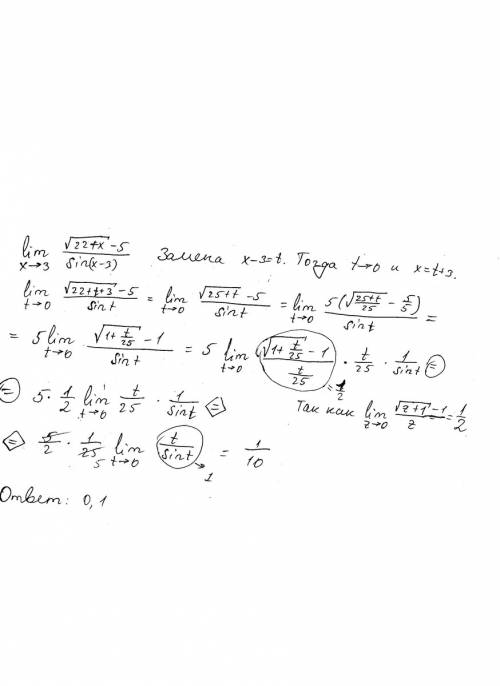 lim x→3 (√(22+x) - 5)/(sin(x-3)) Замена x-3=t. Тогда t→0 и x=t+3.
lim t→0 (√(22+t+3) - 5)/(sin t) = lim t→0 (√(25+t) - 5)/(sin t) = lim t→0 (5(√((25+t)/25) - 5/5))/(sin t) =
= 5 lim t→0 (√(1+t/25) - 1)/(sin t) = 5 lim t→0 (√(1+t/25) - 1)/(t/25) · t/25 · 1/(sin t) =
= 1/2
= 5 · 1/2 lim t→0 t/25 · 1/(sin t) = Так как lim z→0 (√(z+1) - 1)/z = 1/2
= 5/2 · 1/25 5 lim t→0 t/(sin t) → 1 = 1/10
Ответ: 0,1